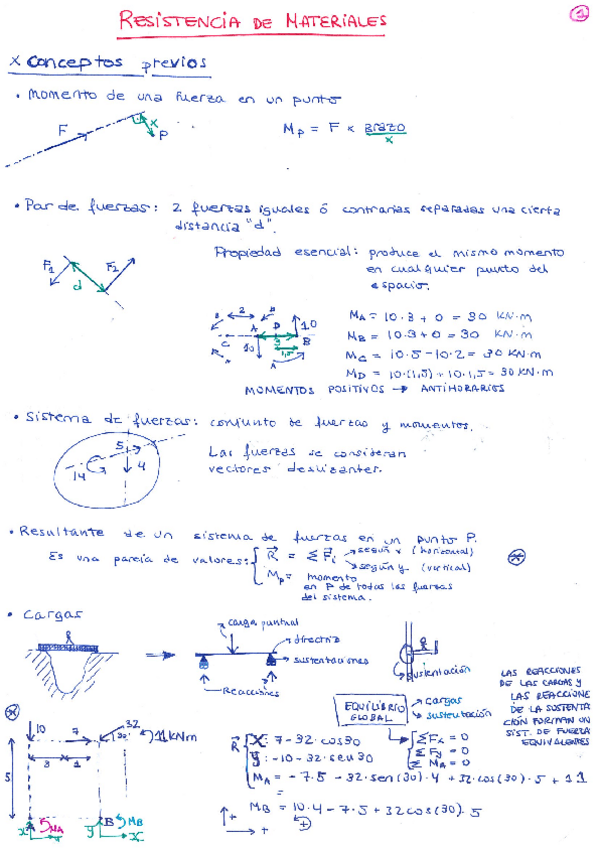 RESISTENCIA DE MATERIALES
1
x conceptos previos
• Momento de una fuerza en un punto
F
x
P
Mp = F x brazo
x
• Par de fuerzas: 2 fuerzas iguales ó contrarias separadas una cierta
distancia "d".
Propiedad esencial: produce el mismo momento
en cualquier punto del
espacio.
F1
F2
d
2
C
A
D
B
10
10
1,5
A
MA = 10·3 + 0 = 30 KN·m
MB = 10·3 + 0 = 30 KN·m
MC = 10·5 - 10·2 = 30 KN·m
MD = 10·(1,5) + 10·1,5 = 30 KN·m
MOMENTOS POSITIVOS → ANTIHORARIOS
• Sistema de fuerzas: conjunto de fuerzas y momentos.
5
4
14
Las fuerzas se consideran
vectores deslizantes.
• Resultante de un sistema de fuerzas en un punto P.
Es una pareja de valores:
R = Σ Fi
según x (horizontal)
según y (vertical)
Mp = momento
en P de todas las fuerzas
del sistema.
• Cargas
R
carga puntual
directriz
sustentaciones
Reacciones
R
sustentación
EQUILIBRIO
GLOBAL
cargas
sustentación
Σ Fx = 0
Σ Fy = 0
Σ MA = 0
LAS REACCIONES
DE LAS CARGAS Y
LAS REACCIONE
DE LA SUSTENTA
CIÓN FORMAN UN
SIST. DE FUERZA
EQUIVALENTES
10
7
32
30°
11 kNm
3
1
5
A
MA
B
MB
x
y
x
R
X: 7 - 32·cos30
y: -10 - 32·sen30
MA = -7·5 - 32·sen(30)·4 + 32·cos(30)·5 + 11
=
MB = 10·4 - 7·5 + 32cos(30)·5
+
+
+